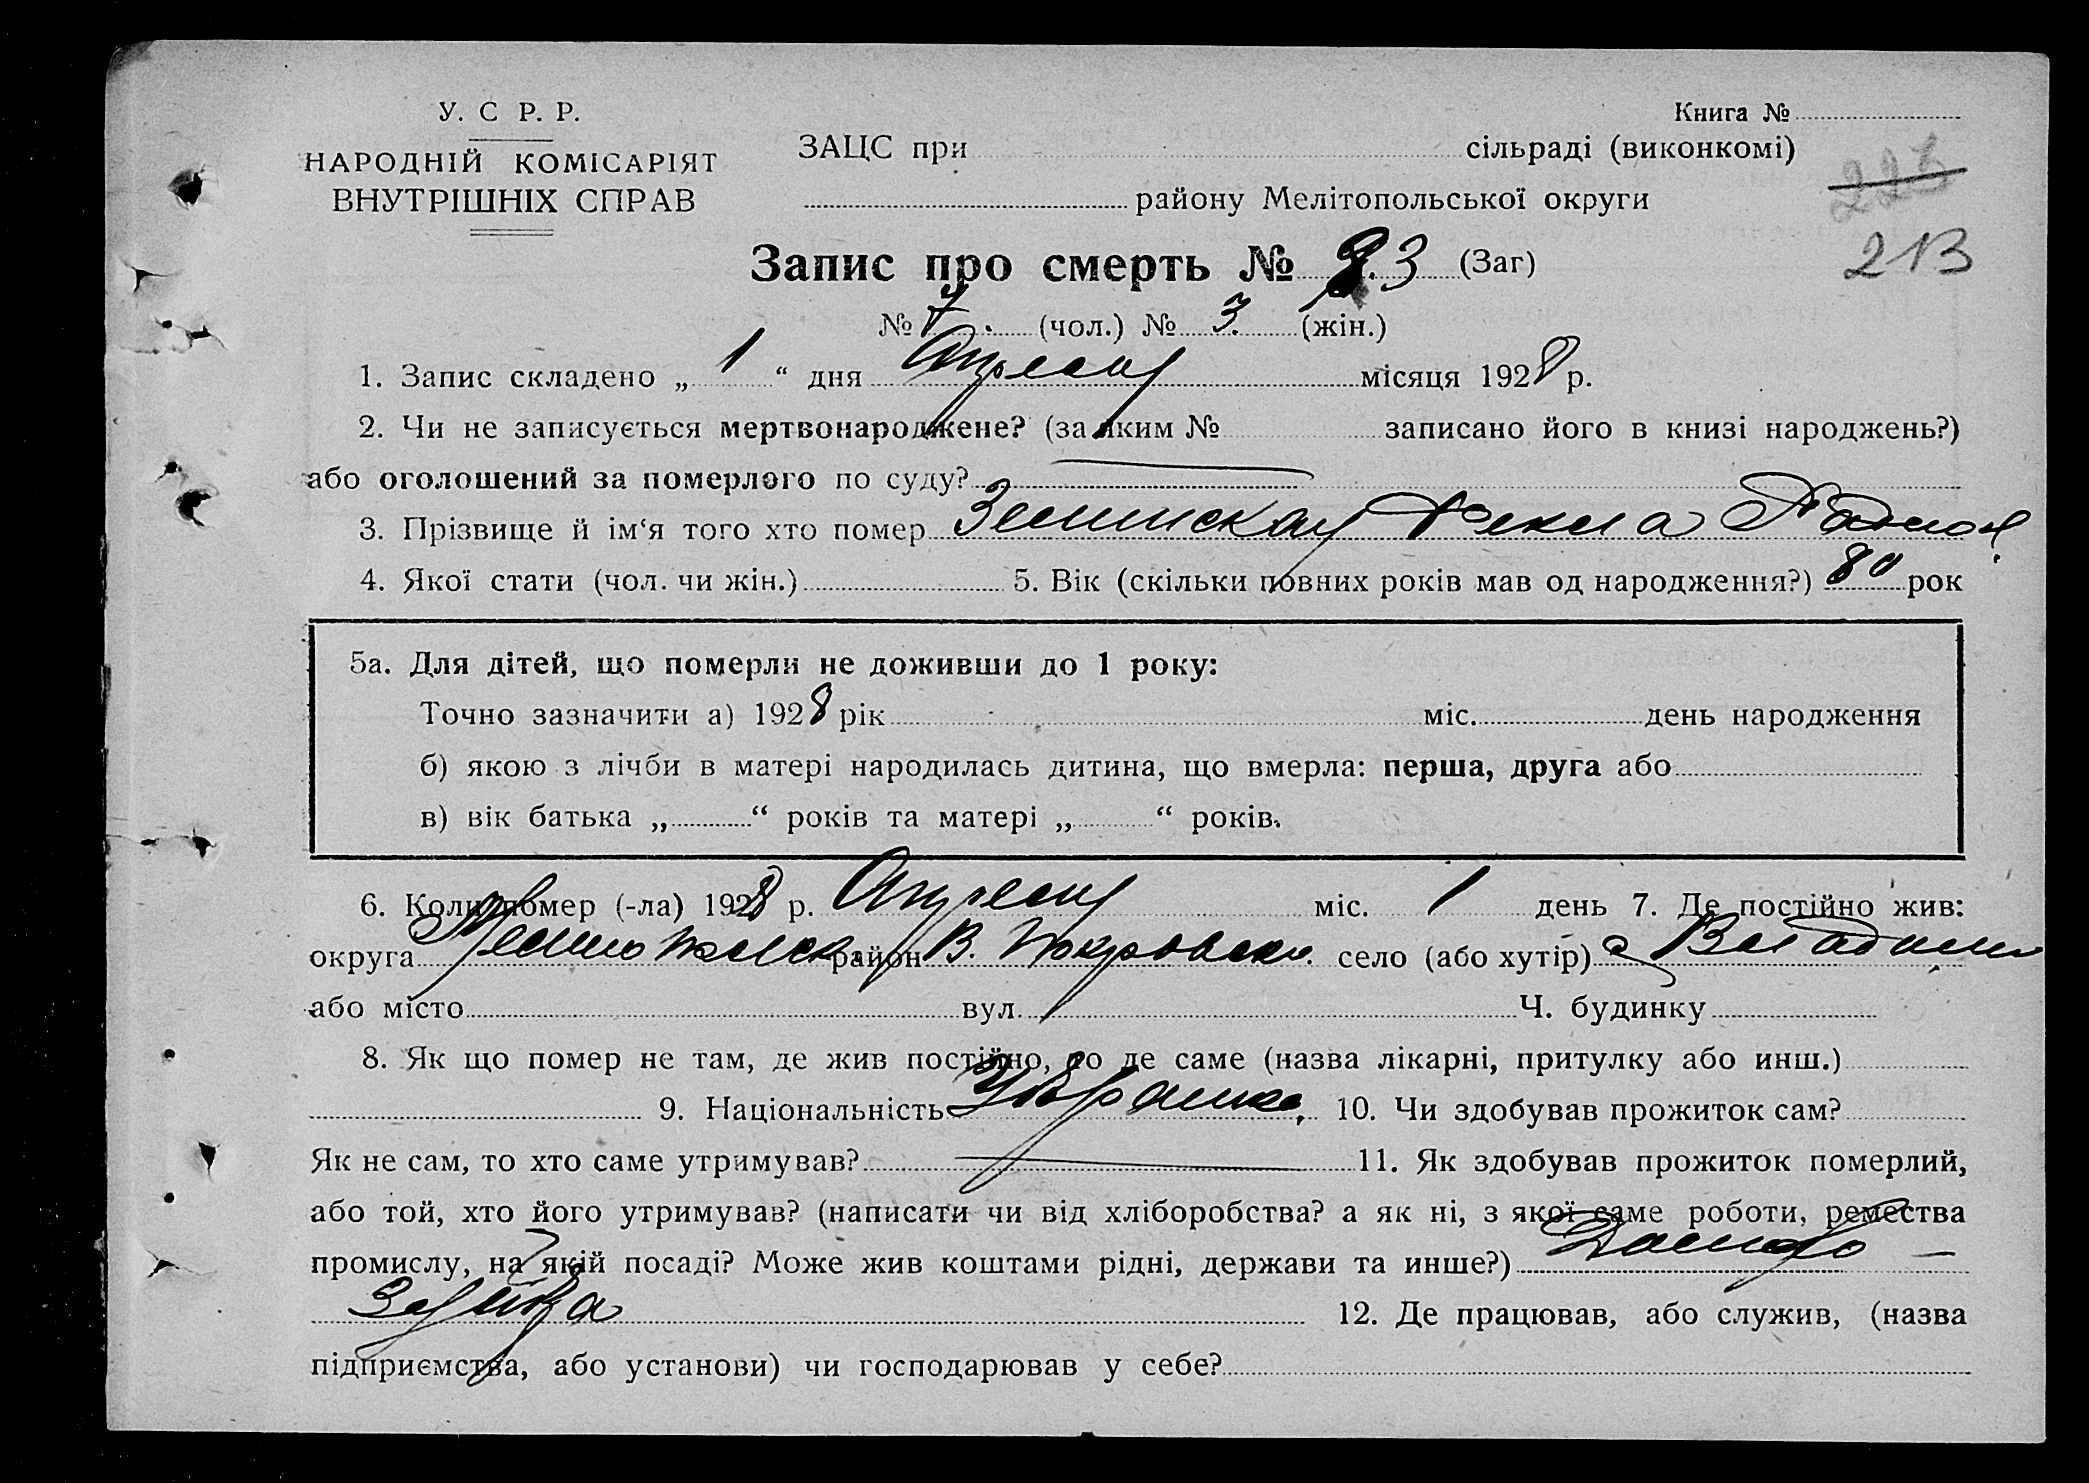 У. С Р. Р.
НАРОДНІЙ КОМІСАРІЯТ
ВНУТРІШНІХ СПРАВ
Книга №
ЗАЦС при сільраді (виконкомі)
району Мелітопольської округи
213
Запис про смерть № 3 (Заг)
№ 7. (чол.) № 3. (жін.)
1. Запис складено „ 1 “ дня Апреля місяця 1928 р.
2. Чи не записується мертвонароджене? (за яким № записано його в книзі народжень?)
або оголошений за померлого по суду?
3. Прізвище й ім‘я того хто помер Фекла
4. Якої стати (чол. чи жін.) 5. Вік (скільки повних років мав од народження?) 80 рок
5а. Для дітей, що померли не доживши до 1 року:
Точно зазначити а) 1928 рік міс. день народження
б) якою з лічби в матері народилась дитина, що вмерла: перша, друга або
в) вік батька „ “ років та матері „ “ років.
6. Коли помер (-ла) 1928 р. Апреля міс. 1 день 7. Де постійно жив:
округа район В. Покровск. село (або хутір)
або місто вул. Ч. будинку
8. Як що помер не там, де жив постійно, то де саме (назва лікарні, притулку або инш.)
9. Національність 10. Чи здобував прожиток сам?
Як не сам, то хто саме утримував? 11. Як здобував прожиток померлий,
або той, хто його утримував? (написати чи від хліборобства? а як ні, з якої саме роботи, ремества
промислу, на якій посаді? Може жив коштами рідні, держави та инше?)
12. Де працював, або служив, (назва
підприємства, або установи) чи господарював у себе?